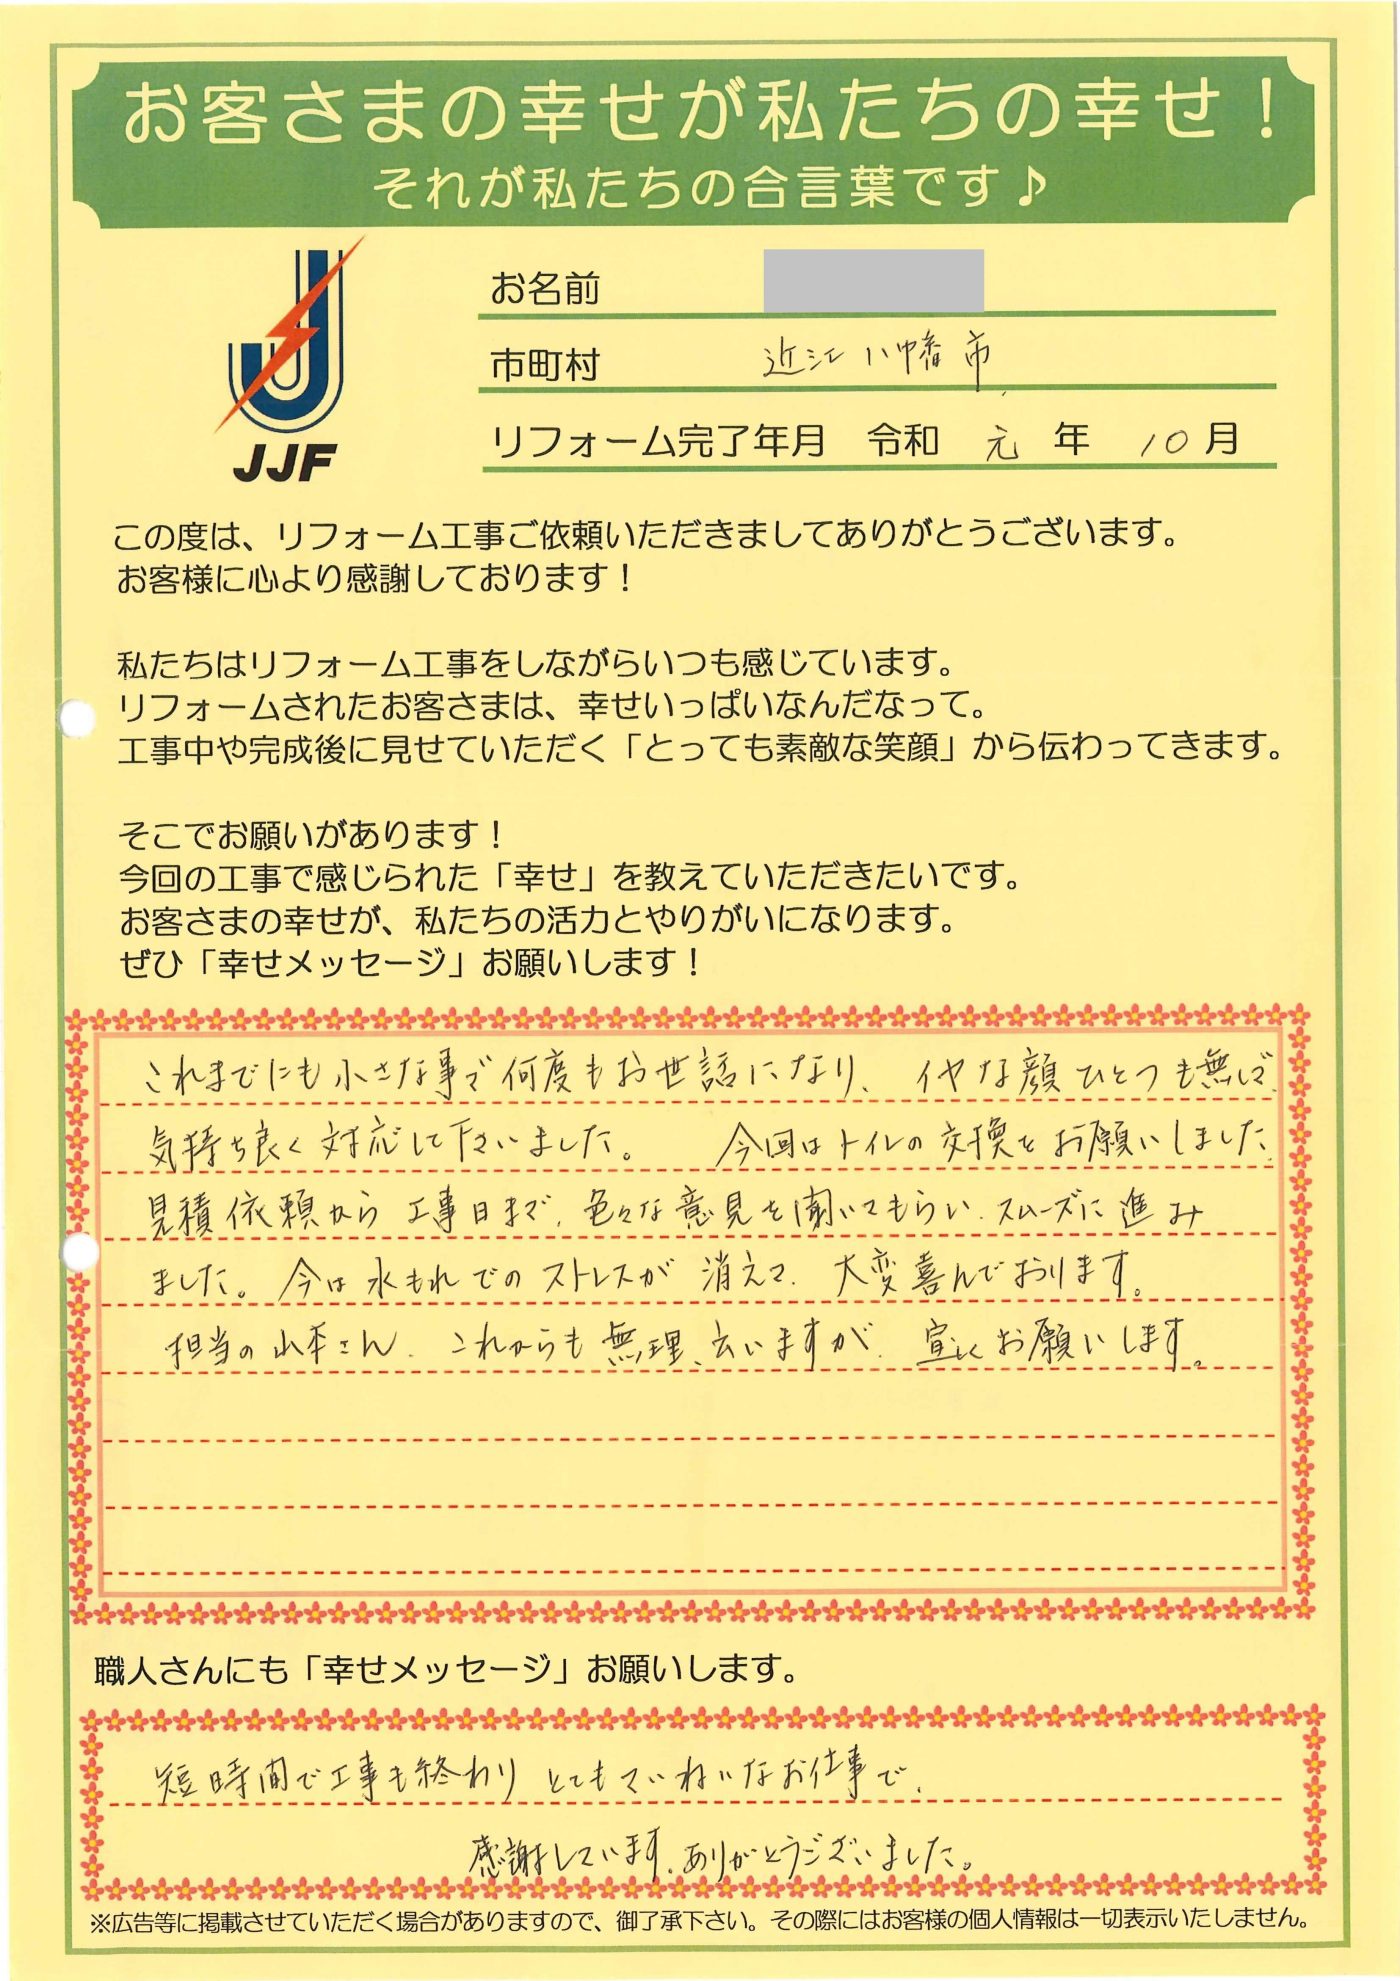 お客さまの幸せが私たちの幸せ！
それが私たちの合言葉です♪
お名前
市町村 近江八幡市
リフォーム完了年月 令和 元 年 10 月
JJF
この度は、リフォーム工事ご依頼いただきましてありがとうございます。
お客様に心より感謝しております！
私たちはリフォーム工事をしながらいつも感じています。
リフォームされたお客さまは、幸せいっぱいなんだなって。
工事中や完成後に見せていただく「とっても素敵な笑顔」から伝わってきます。
そこでお願いがあります！
今回の工事で感じられた「幸せ」を教えていただきたいです。
お客さまの幸せが、私たちの活力とやりがいになります。
ぜひ「幸せメッセージ」お願いします！
これまでにも小さな事で何度もお世話になり、イヤな顔ひとつも無しで、
気持ち良く対応して下さいました。 今回はトイレの交換をお願いしました
見積依頼から工事日まで、色々な意見を聞いてもらい、スムーズに進み
ました。今は水もれでのストレスが消えて、大変喜んでおります。
担当の山本さん、これからも無理、云いますが、宜しくお願いします。
職人さんにも「幸せメッセージ」お願いします。
短時間で工事も終わりとてもていねいなお仕事で、
感謝しています、ありがとうございました。
※広告等に掲載させていただく場合がありますので、御了承下さい。その際にはお客様の個人情報は一切表示いたしません。